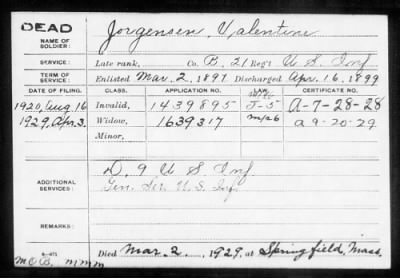 DEAD
NAME OF SOLDIER: Jorgensen, Valentine
SERVICE: Late rank, Co. B, 21 Reg't U S Inf
TERM OF SERVICE: Enlisted Mar. 2, 1897 Discharged Apr. 16, 1899
DATE OF FILING. CLASS. APPLICATION NO. LAW. CERTIFICATE NO.
1920, Aug 16 Invalid, 1439895 J-5 A-7-28-28
1929, Apr. 3. Widow, 1639317 A 9-20-29
Minor,
ADDITIONAL SERVICES: D. 9 U S Inf
Gen. Ser. U. S. Inf.
REMARKS:
Died Mar. 2, 1929, at Springfield, Mass.